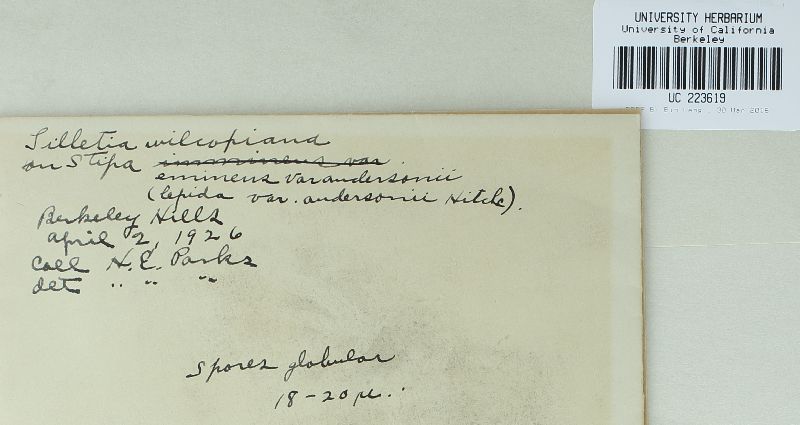 UNIVERSITY HERBARIUM
University of California
Berkeley
UC 223619
Tilletia wilcoxiana
on Stipa imminens var.
eminens var andersonii
(lepida var. andersonii Hitchc).
Berkeley Hills
April 2, 1926
Coll H.E. Parks
det " " "
Spores globular
18-20 µ.